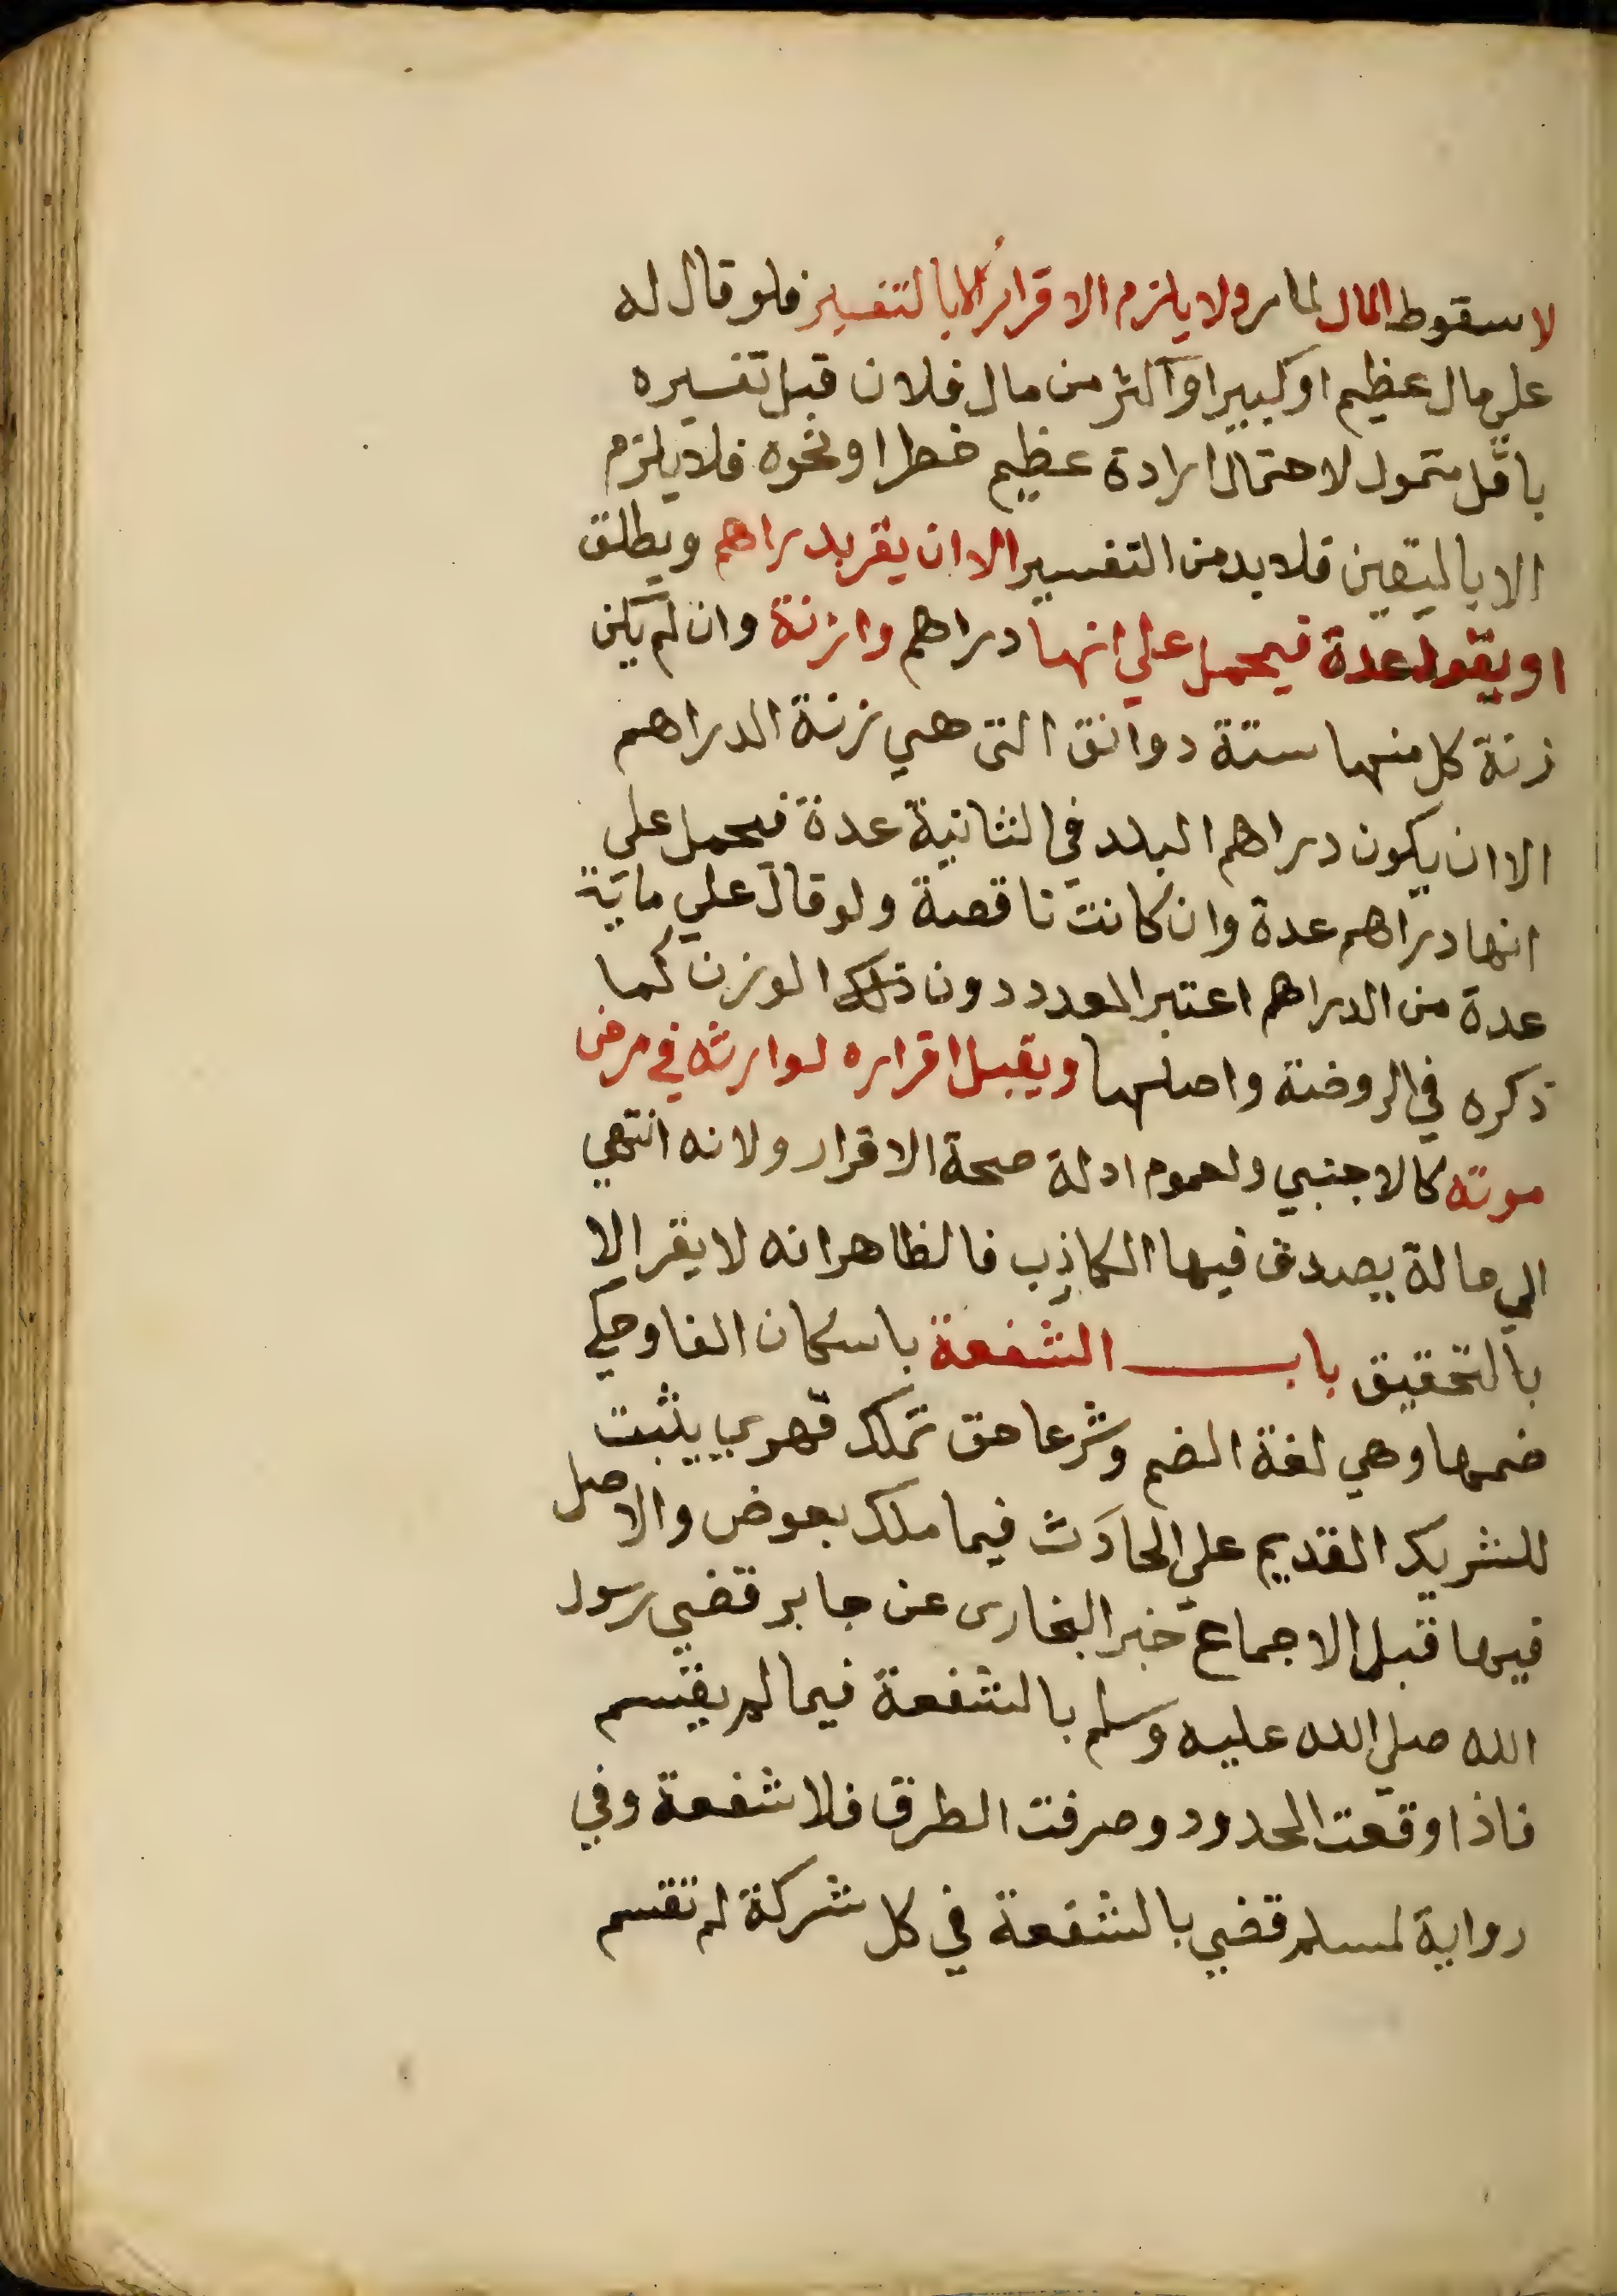 لا سقوط المال لما مر ولا يلزم الاقرار الا بالتفسير فلو قال له
علي مال عظيم او كبير او اكثر من مال فلان قبل تفسيره
باقل متمول لاحتمال ارادة عظيم خطرا ونحوه فلا يلزم
الا باليقين فلا بد من التفسير الا ان يقر بدراهم ويطلق
او يقول عدة فيحمل علي انها دراهم وازنة وان لم يكن
زنة كل منها ستة دوانق التي هي زنة الدراهم
الا ان يكون دراهم البلد في الثانية عدة فيحمل علي
انها دراهم عدة وان كانت ناقصة ولو قال علي ماية
عدة من الدراهم اعتبر العدد دون ذلك الوزن كما
ذكره في الروضة واصلها ويقبل اقراره لوارثه في مرض
موته كالاجنبي ولعموم ادلة صحة الاقرار ولانه انتهي
الي حالة يصدق فيها الكاذب فالظاهر انه لا يقر الا
بالتحقيق باب الشفعة باسكان الفا وحكي
ضمها وهي لغة الضم وشرعا حق تملك قهري يثبت
للشريك القديم علي الحادث فيما ملك بعوض والاصل
فيها قبل الاجماع خبر البخاري عن جابر قضي رسول
الله صلي الله عليه وسلم بالشفعة فيما لم يقسم
فاذا وقعت الحدود وصرفت الطرق فلا شفعة وفي
رواية لمسلم قضي بالشفعة في كل شركة لم تقسم